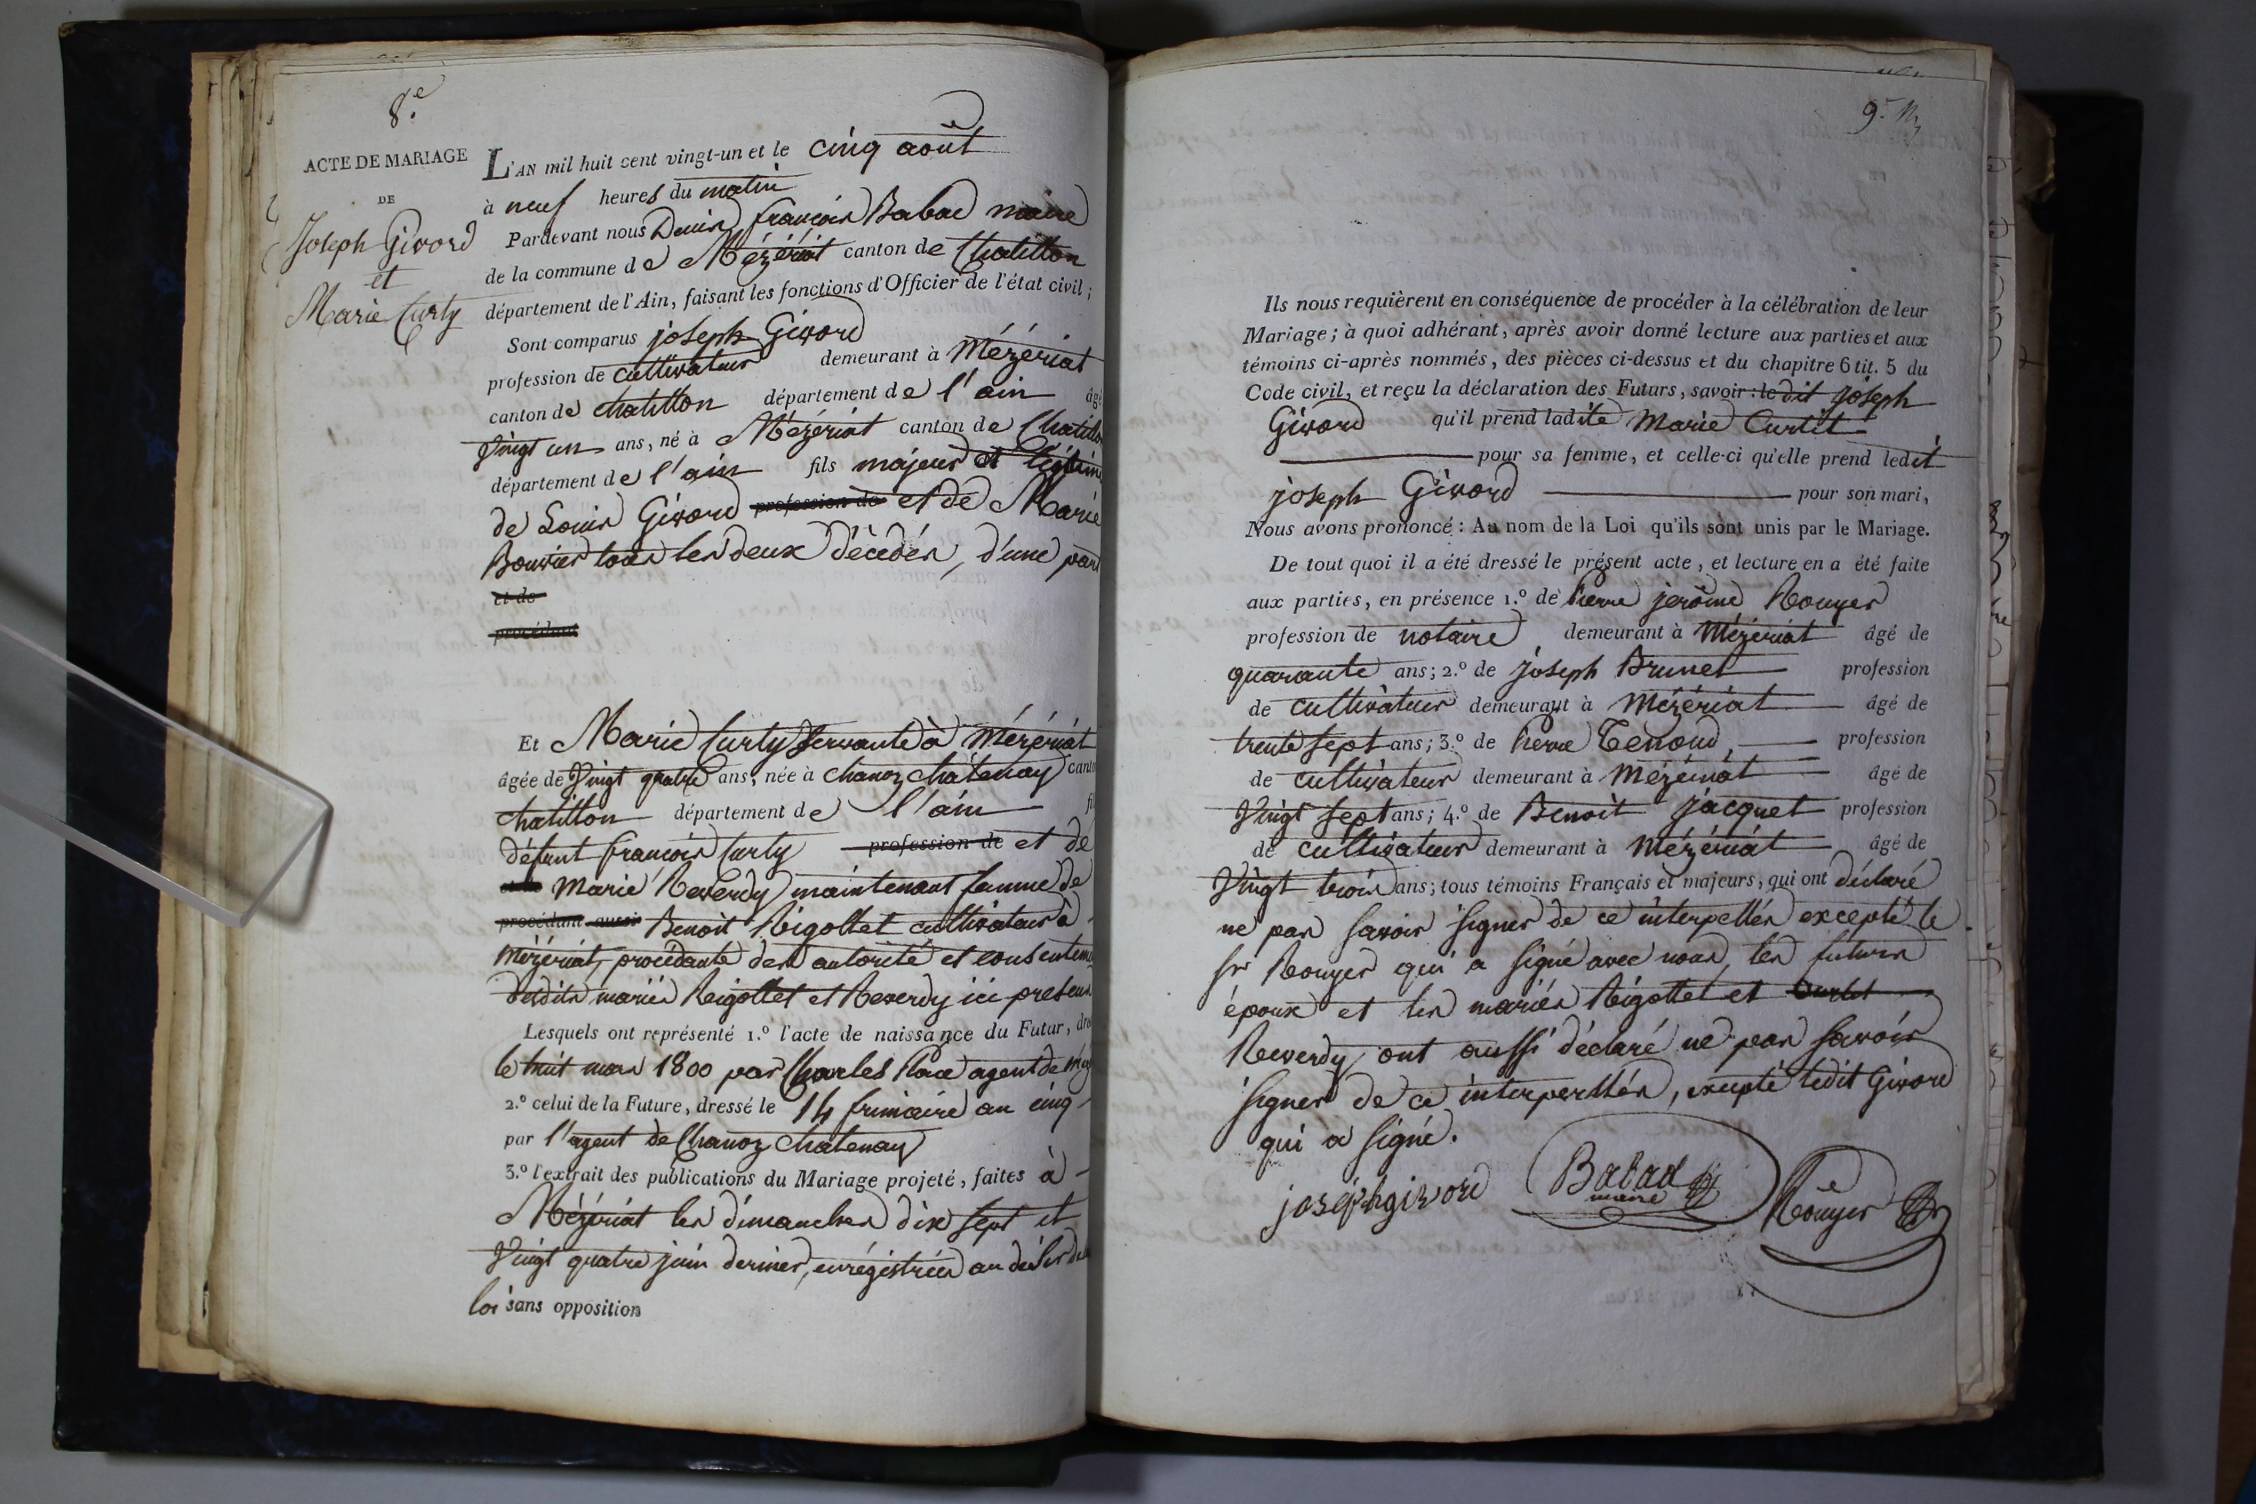 8.e
ACTE DE MARIAGE
DE
Joseph Givord
et
Marie Curty
L'AN mil huit cent vingt-un et le cinq août
à neuf heures du matin
Pardevant nous Denis françois Babad maire
de la commune de Mézériat canton de Chatillon
département de l'Ain, faisant les fonctions d'Officier de l'état civil;
Sont comparus joseph Givord
profession de cultivateur demeurant à Mézériat
canton de chatillon département de l'ain âgé
Vingt un ans, né à Mézériat canton de Chatillo
département de l'ain fils majeur et légitime
de Louis Givord profession de et de Marie
Bouvier tous les deux décédés, d'une part
et de
procédant
Et Marie Curty servante à Mézériat
âgée de Vingt quatre ans, née à chanoz châtenay cant
chatillon département de l'ain fil
défunt françois Curty profession de et de
Marie Reverdy maintenant femme de
procédant aussi Benoit Rigottet cultivateur à
Mézériat, procédante de autorité et consenteme
desdits mariés Rigottet et Reverdy ici présens
Lesquels ont représenté 1.º l'acte de naissance du Futur, dre
le huit mars 1800 par Charles Place agent de Méz
2.º celui de la Future, dressé le 14 frimaire an cinq
par l'agent de Chanoz Chatenay
3.º l'extrait des publications du Mariage projeté, faites à
Mézériat les dimanches dix sept et
Vingt quatre juin dernier, enrégistrées au désir de
loi sans opposition
9.
Ils nous requièrent en conséquence de procéder à la célébration de leur
Mariage; à quoi adhérant, après avoir donné lecture aux parties et aux
témoins ci-après nommés, des pièces ci-dessus et du chapitre 6 tit. 5 du
Code civil, et reçu la déclaration des Futurs, savoir: le dit joseph
Givord qu'il prend ladite Marie Curtit
pour sa femme, et celle-ci qu'elle prend ledit
joseph Givord pour son mari,
Nous avons prononcé: Au nom de la Loi qu'ils sont unis par le Mariage.
De tout quoi il a été dressé le présent acte, et lecture en a été faite
aux parties, en présence 1.º de Pierre jerôme Rouyer
profession de notaire demeurant à Mézériat âgé de
quarante ans; 2.º de joseph Brunet profession
de cultivateur demeurant à Mézériat âgé de
trente sept ans; 3.º de Pierre Tenoud, profession
de cultivateur demeurant à Mézériat âgé de
Vingt sept ans; 4.º de Benoit jacquet profession
de cultivateur demeurant à Mézériat âgé de
Vingt trois ans; tous témoins Français et majeurs, qui ont déclaré
ne pas savoir signer de ce interpellés excepté le
sr Rouyer qui a signé avec nous, les futurs
époux et les mariés Rigottet et Curtit
Reverdy, ont aussi déclaré ne pas savoir
signer de ce interpellés, excepté ledit Givord
qui a signé.
joséphgivord
Babad
maire
Rouyer